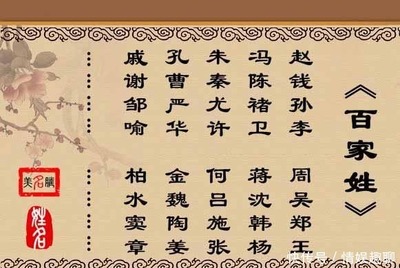 《百家姓》
赵钱孙李 周吴郑王
冯陈褚卫 蒋沈韩杨
朱秦尤许 何吕施张
孔曹严华 金魏陶姜
戚谢邹喻 柏水窦章
…… ……
美名腾
姓名
快传号